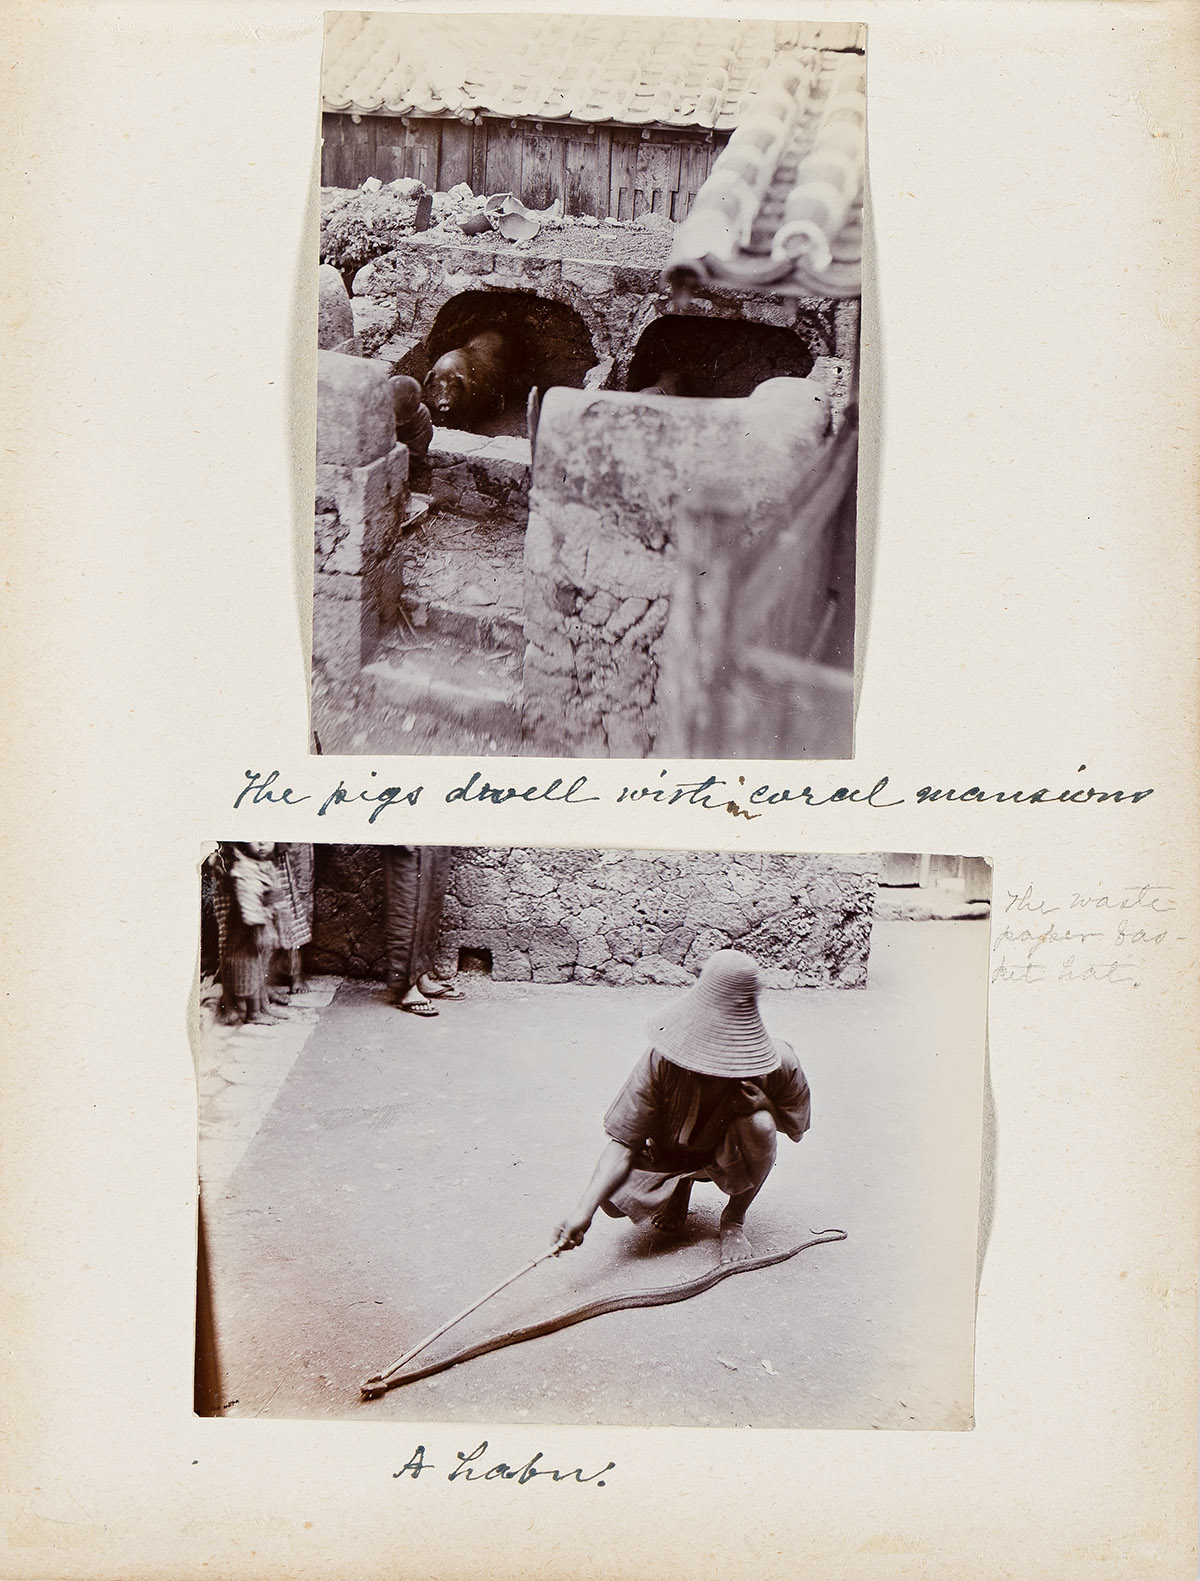 The pigs dwell within coral mansions
The waste
paper bas-
ket hat.
A habu.